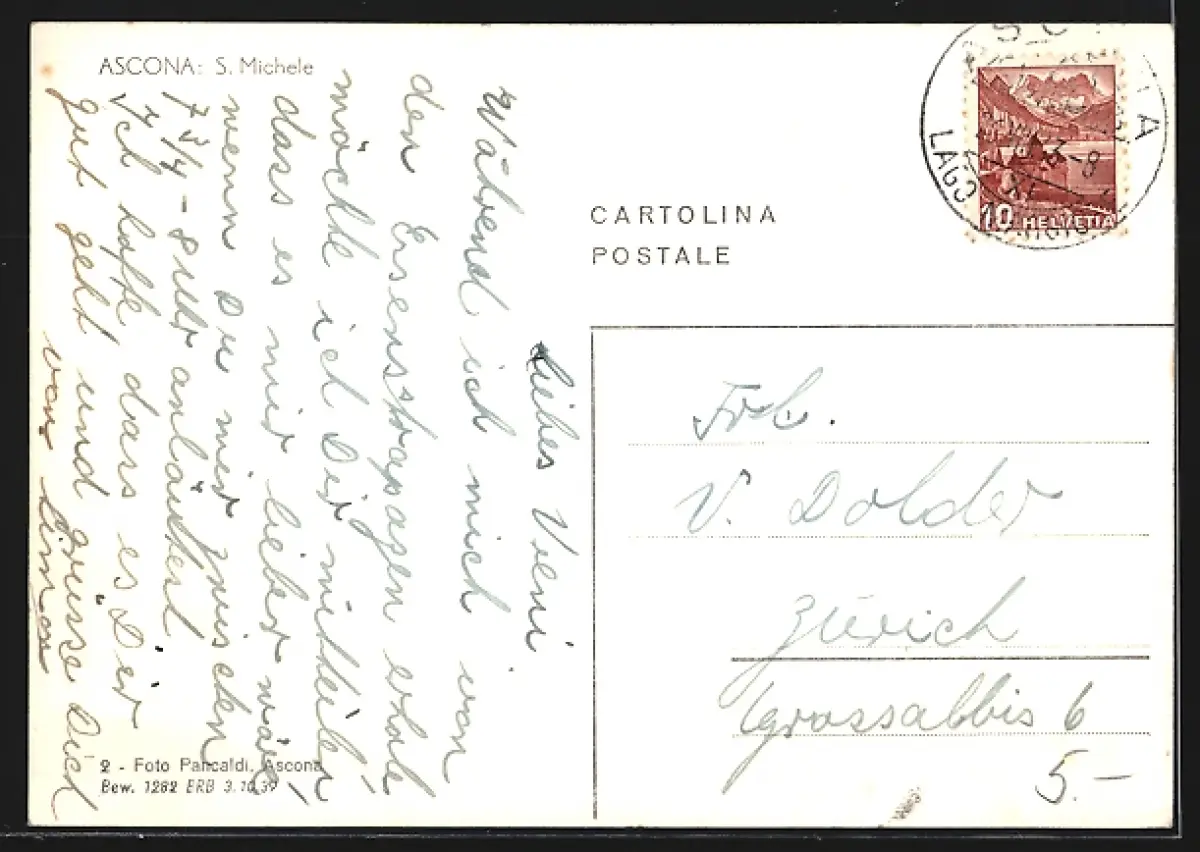 ASCONA: S. Michele
Liebes Vreni
Während ich mich von
den Essensstrapazen erhole
möchte ich Dir mitteilen
dass es mir lieber wäre
wenn Du mir zwischen
7¾ - 8 Uhr anläutest
Ich hoffe dass es Dir
gut geht und grüsse Dich
von
2 - Foto Pancaldi, Ascona
Bew. 1282 ERB 3.10.39
CARTOLINA
POSTALE
LAGO
10 HELVETIA
Frl.
V. Dolder
Zürich
Grossalbis 6
5.-